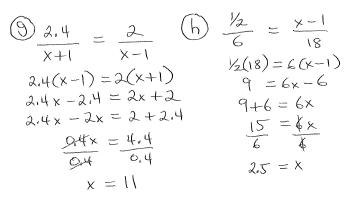 (g) 2.4/(x+1) = 2/(x-1)
2.4(x-1) = 2(x+1)
2.4x - 2.4 = 2x + 2
2.4x - 2x = 2 + 2.4
0.4x/0.4 = 4.4/0.4
x = 11
(h) (1/2)/6 = (x-1)/18
1/2(18) = 6(x-1)
9 = 6x - 6
9+6 = 6x
15/6 = 6x/6
2.5 = x